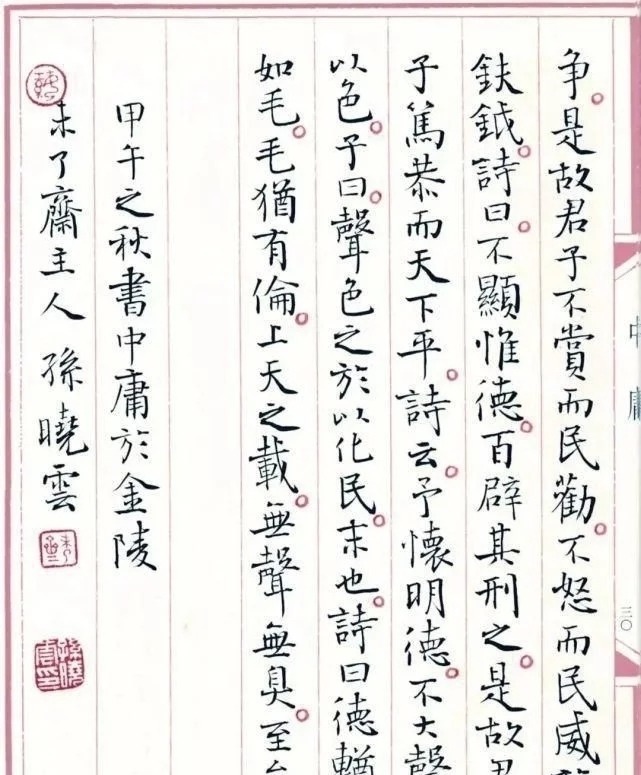 争。是故君子不賞而民勸。不怒而民威
鈇鉞。詩曰。不顯惟德。百辟其刑之。是故君
子篤恭而天下平。詩云。予懷明德。不大聲
以色。子曰。聲色之於以化民。末也。詩曰德輶
如毛。毛猶有倫。上天之載。無聲無臭。至
甲午之秋書中庸於金陵
未了齋主人 孫曉雲
中庸
三〇
孫曉雲印